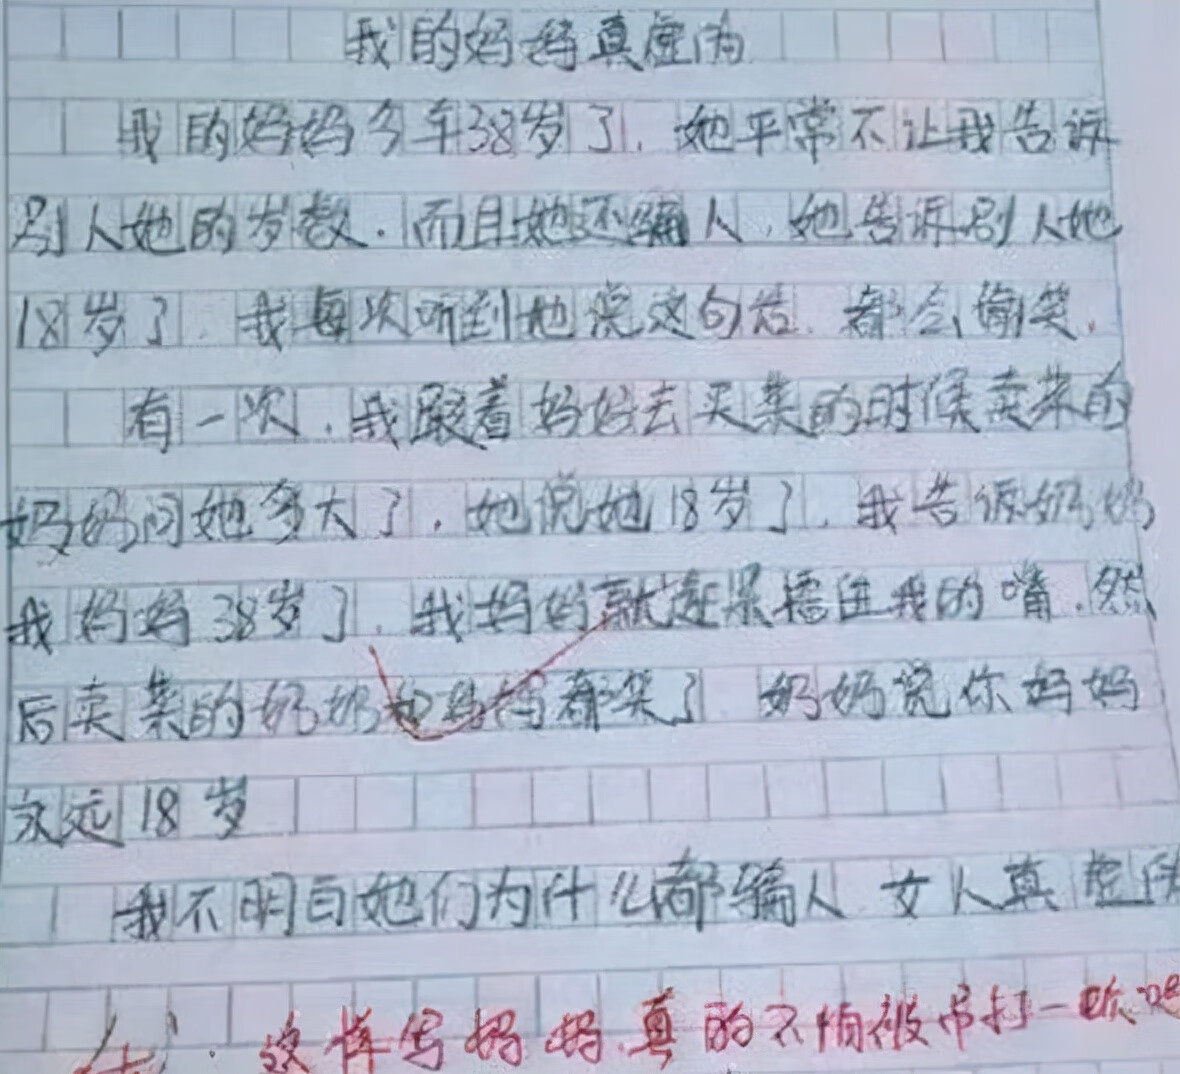 我的妈妈真虚伪
我的妈妈今年38岁了，她平常不让我告诉
别人她的岁数．而且她还骗人，她告诉别人她
18岁了，我每次听到她说这句话，都会偷笑．
有一次，我跟着妈妈去买菜的时候卖菜的
奶奶问她多大了，她说她18岁了，我告诉奶奶
我妈妈38岁了，我妈妈就赶紧捂住我的嘴．然
后卖菜的奶奶和妈妈都笑了 奶奶说你妈妈
永远18岁
我不明白她们为什么都骗人 女人真虚伪
这样写妈妈，真的不怕被吊打一顿吗